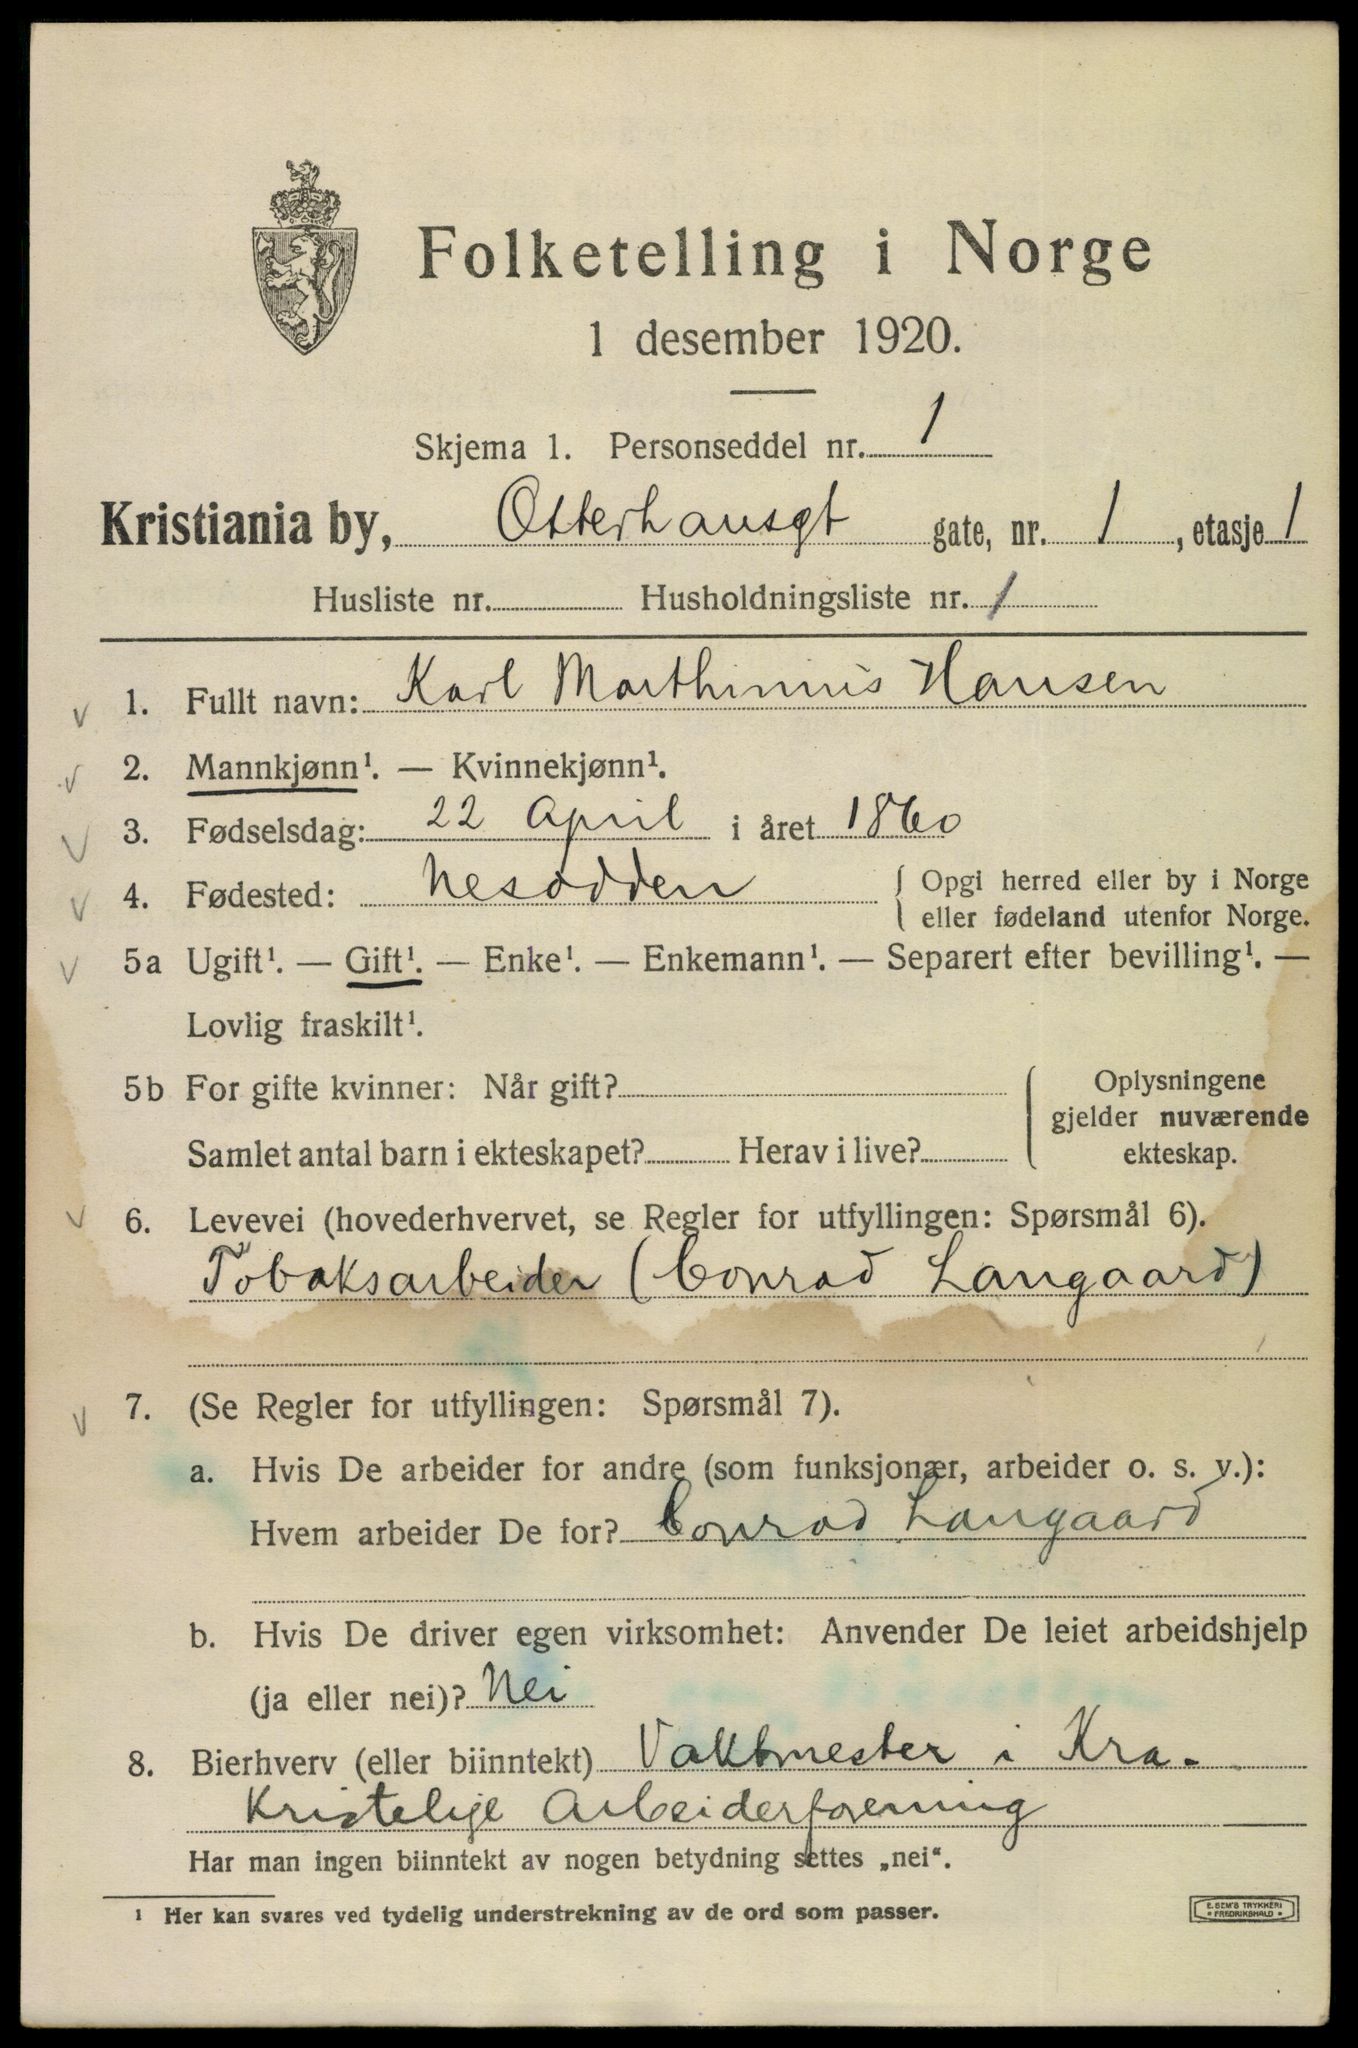 Folketelling i Norge
1 desember 1920.
Skjema 1. Personseddel nr. 1
Kristiania by, Osterhausgt gate, nr. 1, etasje 1
Husliste nr. Husholdningsliste nr. 1
1. Fullt navn: Karl Marthinius Hansen
2. Mannkjønn¹. — Kvinnekjønn¹.
3. Fødselsdag: 22 April i året 1860
4. Fødested: Nesodden { Opgi herred eller by i Norge
eller fødeland utenfor Norge.
5a Ugift¹. — Gift¹. — Enke¹. — Enkemann¹. — Separert efter bevilling¹. —
Lovlig fraskilt¹.
5b For gifte kvinner: Når gift?
Samlet antal barn i ekteskapet? Herav i live?
Oplysningene
gjelder nuværende
ekteskap.
6. Levevei (hovederhvervet, se Regler for utfyllingen: Spørsmål 6).
Tobaksarbeider (Conrad Langaard)
7. (Se Regler for utfyllingen: Spørsmål 7).
a. Hvis De arbeider for andre (som funksjonær, arbeider o. s. v.):
Hvem arbeider De for? Conrad Langaard
b. Hvis De driver egen virksomhet: Anvender De leiet arbeidshjelp
(ja eller nei)? Nei
8. Bierhverv (eller biinntekt) Vaktmester i Kra.
Kristelige Arbeiderforening
Har man ingen biinntekt av nogen betydning settes „nei“.
¹ Her kan svares ved tydelig understrekning av de ord som passer.
E. SEM'S TRYKKERI
FREDRIKSHALD